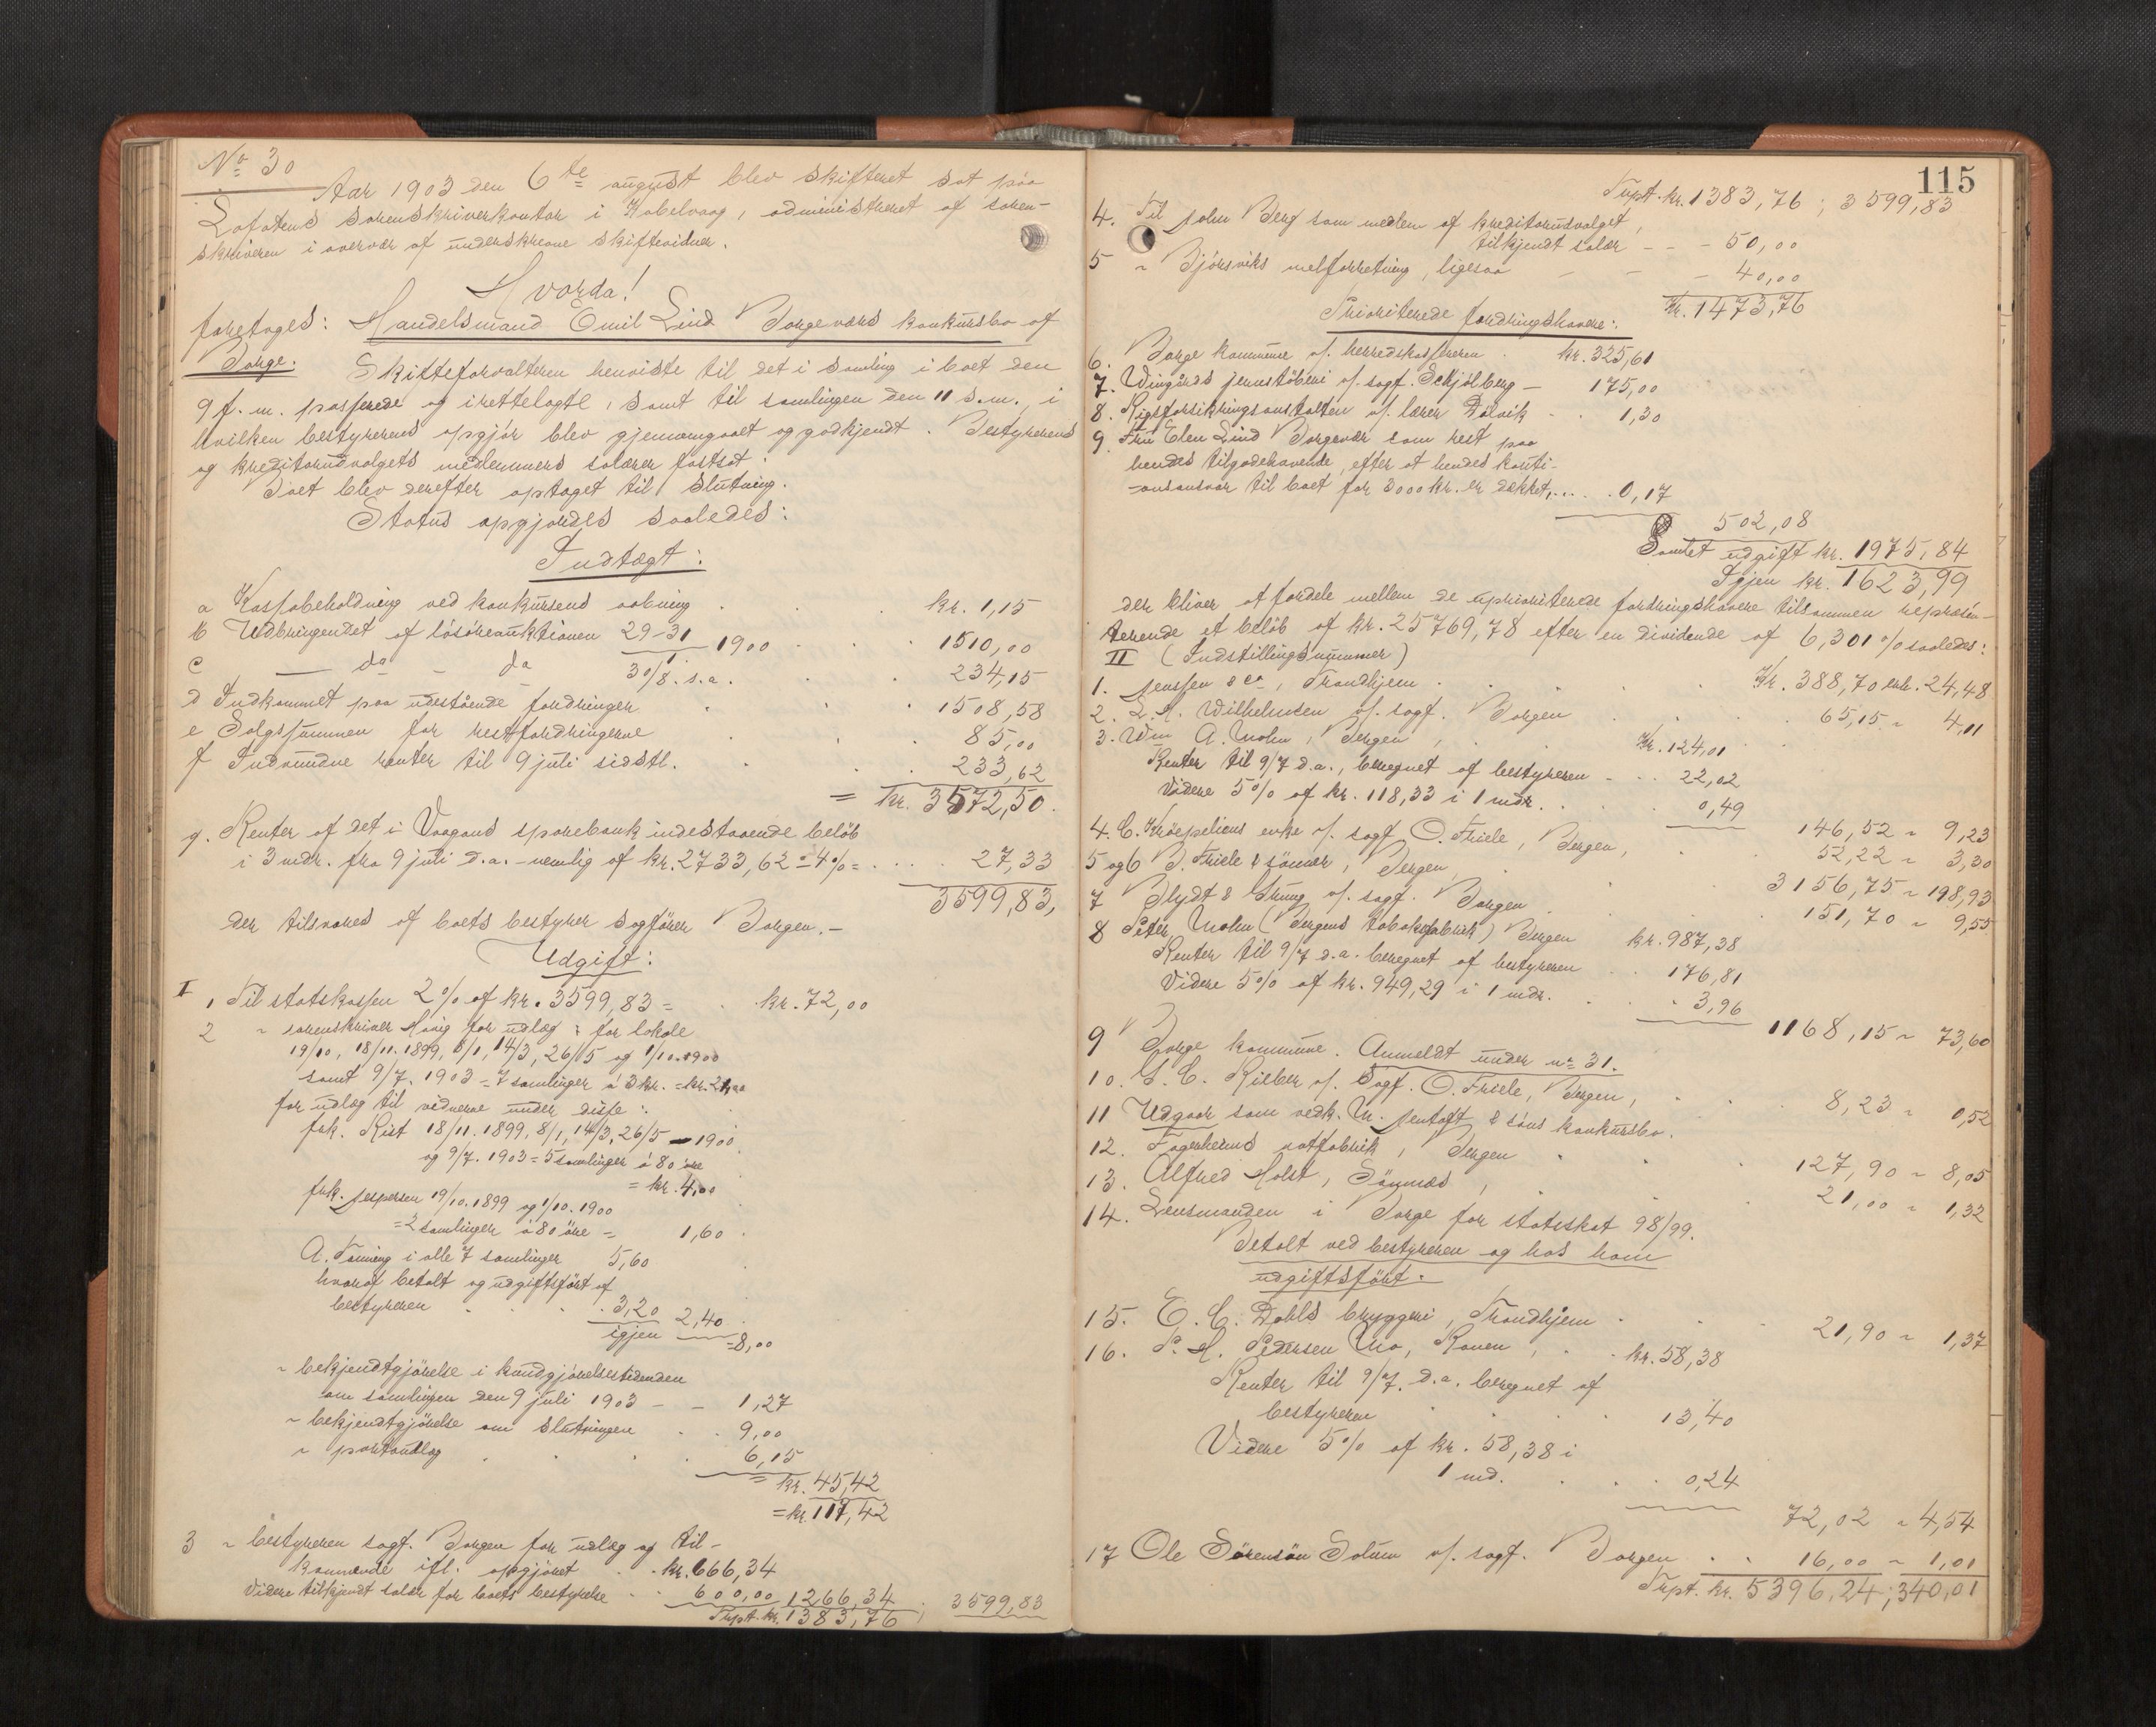 No 30
Aar 1903 den 6te august blev skifteret sat paa
Lofotens sorenskriverkontor i Kabelvaag, administreret af soren-
skriveren i overvær af underskrevne skiftevidner.
Hvorda!
foretoges: Handelsmand Emil Lind Borgeværs konkursbo af
Borge. Skifteforvalteren henviste til det i samling i boet den
9 f. m. passerede og irettelagte, samt til samlingen den 11 s.m., i
hvilken bestyrerens opgjör blev gjennemgaaet og godkjendt. Bestyrerens
og kreditorudvalgets medlemmers salærer fastsat.
Boet blev derefter optaget til slutning.
Status opgjordes saaledes:
Indtægt:
a Kassabeholdning ved konkursens aabning kr. 1,15
b Udbringendet af lösöreauktionen 29-31/1 1900 1510,00
c — do — do 30/8. s.a. 234,15
d Indkommet paa udestående fordringer 1508,58
e Salgssummen for restfordringerne 85,00
f Indvundne renter til 9 juli sidstl. 233,62
= kr. 3572,50.
g. Renter af det i Vaagans sparebank indestaaende beløb
i 3 mdr. fra 9 juli d.a. - nemlig af kr. 2733,62 = 4% = 27,33
3599,83,
der tilsvares af boets bestyrer sagförer Borgen.-
Udgift:
I 1 Til statskassen 2% af kr. 3599,83 = kr. 72,00
2 " sorenskriver Hovig for udlæg: for lokale
19/10, 18/11. 1899, 8/1, 14/3, 26/5 og 1/10. 1900
samt 9/7. 1903 = 7 samlinger á 3 kr. = kr. 21,00
for udlæg til vidnerne under disse:
frk. Rist 18/11. 1899, 8/1, 14/3, 26/5 - 1900
og 9/7. 1903 = 5 samlinger á 80 öre
= kr. 4,00
frk. Jespersen 19/10. 1899 og 1/10. 1900
= 2 samlinger á 80 öre = 1,60
A. Tönning i alle 7 samlinger 5,60
hvoraf betalt og udgiftsfört af
bestyreren 3,20 2,40
igjen = 8,00
" bekjendtgjörelse i kundgjörelsestidenden
om samlingen den 9 juli 1903 - - 1,27
" bekjendtgjörelse om slutningen 9,00
" portoudlæg 6,15
= kr. 45,42
= kr. 117,42
3 " bestyreren sagf. Borgen for udlæg og til-
kommende ifl. opgjöret kr. 666,34
Videre tilkjendt salær for boets bestyrelse 600,00 1266,34
Trpt. kr. 1383,76; 3599,83
115
Trpt. kr. 1383,76; 3599,83
4. Til John Berg som medlem af kreditorudvalget,
tilkjendt salær - - - 50,00
5 " Bjórsviks melforretning, ligesaa - - - 40,00
Kr. 1473,76
Prioriterede fordringshavere:
6. Borge kommune v/. herredskassereren kr. 325,61
7. Wingårds jernstöberi v/. sagf. Schjölberg - 175,00
8. Rigsforsikringsanstalten v/. lærer Dalvik 1,30
9. Fru Elen Lind Borgevær som rest paa
hendes tilgodehavende, efter at hendes kauti-
onsansvar til boet for 3000 kr. er dækket,.... 0,17
502,08
Samlet udgift kr. 1975,84
Igjen kr. 1623,99
der bliver at fordele mellem de uprioriterede fordringshavere tilsammen repræsen-
terende et beløb af kr. 25769,78 efter en dividende af 6,301% saaledes:
II (Indstillingsnummer)
1. Jenssen & co, Trondhjem Kr. 388,70 erh. 24,48
2. L. A. Wilhelmsen v/. sagf. Borgen 65,15 " 4,11
3. Wm A. Mohn, Bergen, Kr. 124,01
Renter til 9/7 d.a., beregnet af bestyreren 22,02
Videre 5% af kr. 118,33 i 1 mdr. 0,49
146,52 " 9,23
4. C. Kröepeliens enke v/. sagf. O. Friele, Bergen, 52,22 " 3,30
5 og 6 B. Friele & sönner, Bergen 3156,75 " 198,93
7 Blydt & Strung v/. sagf. Borgen 151,70 " 9,55
8 Peter Mohn (Bergens tobaksfabrik) Bergen kr. 987,38
Renter til 9/7 d.a. beregnet af bestyreren 176,81
Videre 5% af kr. 949,29 i 1 mdr. 3,96
1168,15 " 73,60
9 Borge kommune. Anmeldt under no 31.
10. G. C. Rieber v/. Sagf. O. Friele, Bergen, 8,23 " 0,52
11 Udgaar som vedk. M. Jentoft & söns konkursbo.
12. Fagerheims notfabrik, Bergen 127,90 " 8,05
13. Alfred Holst, Sörnæs, 21,00 " 1,32
14. Lensmanden i Borge for statsskat 98/99.
Betalt ved bestyreren og hos ham
udgiftsfört.
15. E. C. Dahls bryggeri, Trondhjem 21,90 " 1,37
16. P. H. Pedersen Mo, Ranen, kr. 58,38
Renter til 9/7. d.a. beregnet af
bestyreren 13,40
Videre 5% af kr. 58,38 i
1 md. 0,24
72,02 " 4,54
17 Ole Sörensön Solum v/. sagf. Borgen 16,00 " 1,01
Trpt. kr. 5396,24; 340,01